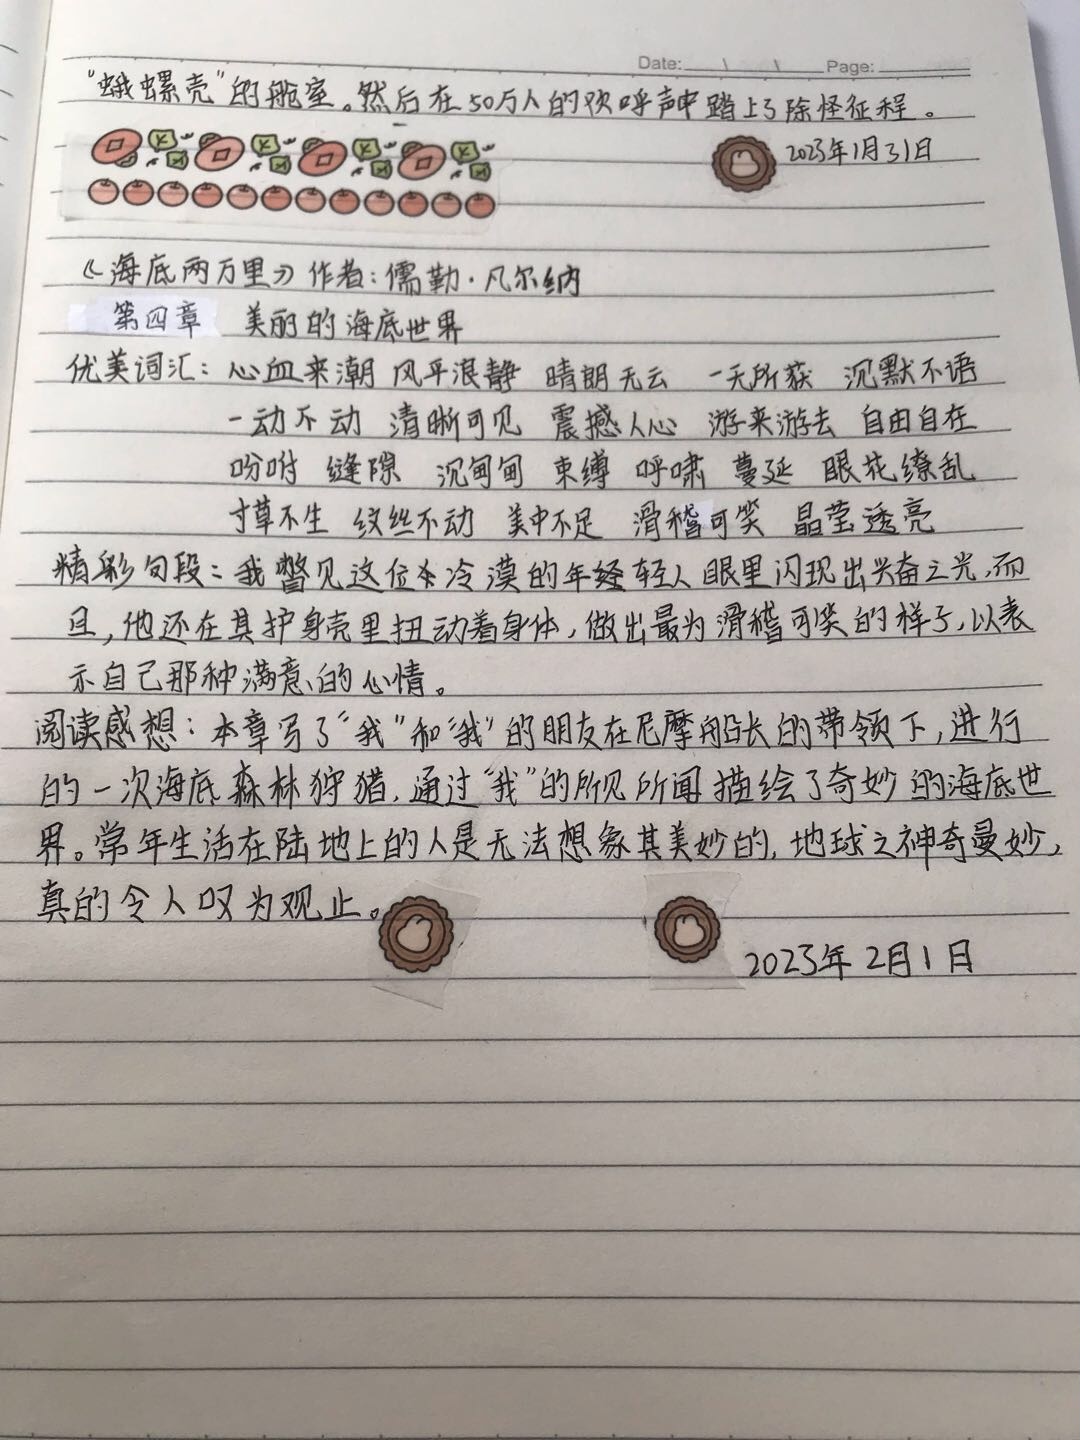 Date: \ \ Page:
“蛾螺壳”的舱室。然后在50万人的欢呼声中踏上了除怪征程。
2023年1月31日
《海底两万里》作者：儒勒·凡尔纳
第四章 美丽的海底世界
优美词汇：心血来潮 风平浪静 晴朗无云 一无所获 沉默不语
一动不动 清晰可见 震撼人心 游来游去 自由自在
吩咐 缝隙 沉甸甸 束缚 呼啸 蔓延 眼花缭乱
寸草不生 纹丝不动 美中不足 滑稽可笑 晶莹透亮
精彩句段：我瞥见这位冷漠的年轻人眼里闪现出兴奋之光，而
且，他还在其护身壳里扭动着身体，做出最为滑稽可笑的样子，以表
示自己那种满意的心情。
阅读感想：本章写了“我”和“我”的朋友在尼摩船长的带领下，进行
的一次海底森林狩猎，通过“我”的所见所闻描绘了奇妙的海底世
界。常年生活在陆地上的人是无法想象其美妙的，地球之神奇曼妙，
真的令人叹为观止。
2023年2月1日